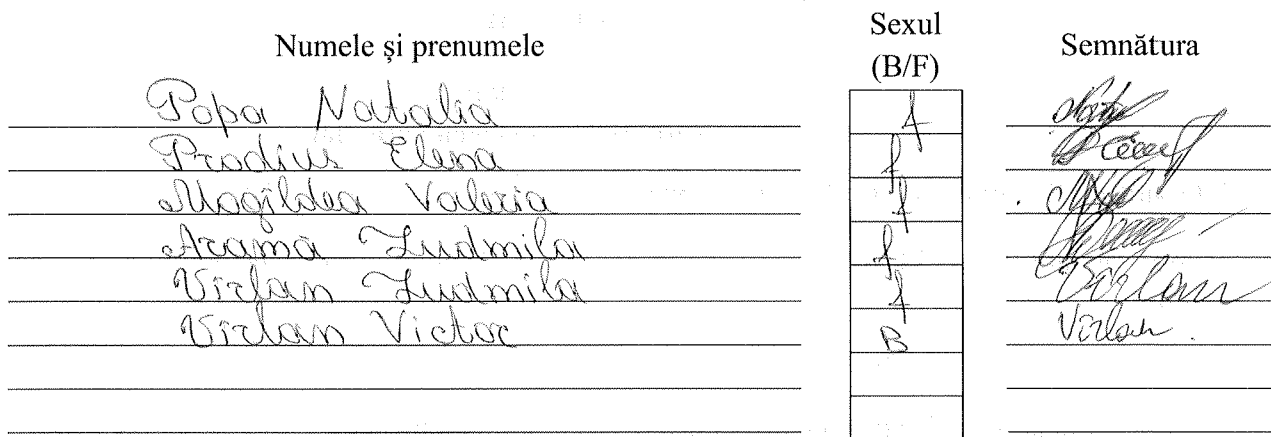 Numele și prenumele Sexul (B/F) Semnătura
Popa Natalia f
Prodius Elena f
Mogîldea Valeria f
Aramă Ludmila f
Vîrlan Ludmila f Vîrlan
Vîrlan Victor B Vîrlan